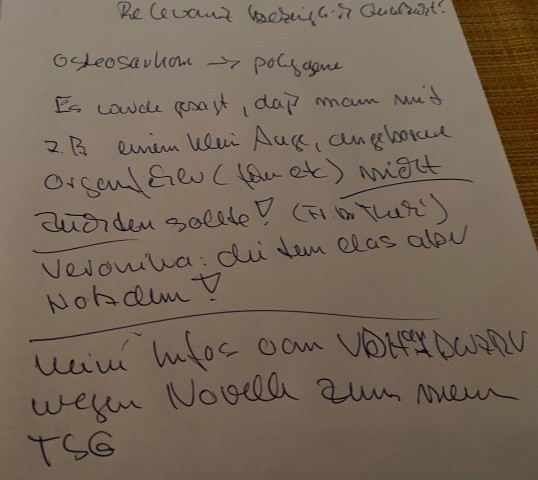 Relevanz bezüglich Qualzucht?
Osteosarkom → polygene
Es wurde gesagt, daß man mit
z.B. einem klein Auge, angeborene
Organ (etc) nicht
züchten sollte! (Fr. Dr.
Veronika: die tun das aber
trotzdem!
Keine Infos vom VDH
wegen Novelle zum neuen
TSG